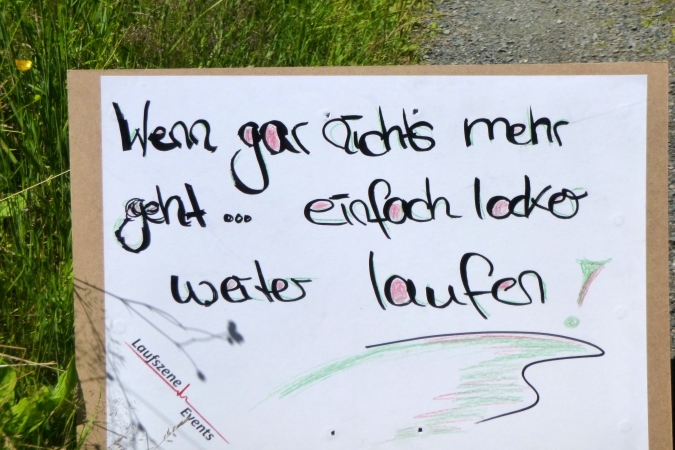 Wenn gar nichts mehr
geht... einfach locker
weiter laufen!
Laufszene
Events